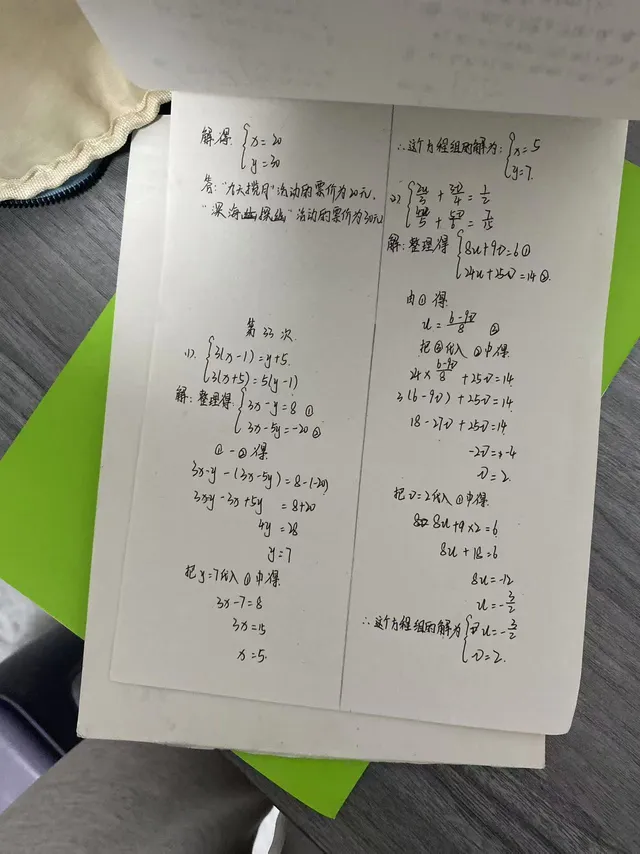 解得 { x=20
y=30
答:"九天揽月"活动的票价为20元,
"深海探幽"活动的票价为30元
第33次
(1). { 3(x-1)=y+5.
3(x+5)=5(y-1)
解:整理得 { 3x-y=8 ①
3x-5y=-20 ②
①-②得
3x-y-(3x-5y)=8-(-20)
3x-y-3x+5y=8+20
4y=28
y=7
把y=7代入①中得
3x-7=8
3x=15
x=5.
∴这个方程组的解为: { x=5
y=7.
(2) { 2u/3 + 3v/4 = 1/2
4u/5 + 5v/6 = 7/15
解:整理得 { 8u+9v=6 ①
24u+25v=14 ②.
由①得
u=(6-9v)/8 ③
把③代入②中得
24×(6-9v)/8+25v=14
3(6-9v)+25v=14
18-27v+25v=14
-2v=-4
v=2.
把v=2代入①中得
8u+9×2=6
8u+18=6
8u=-12
u=-3/2
∴这个方程组的解为 { u=-3/2
v=2.